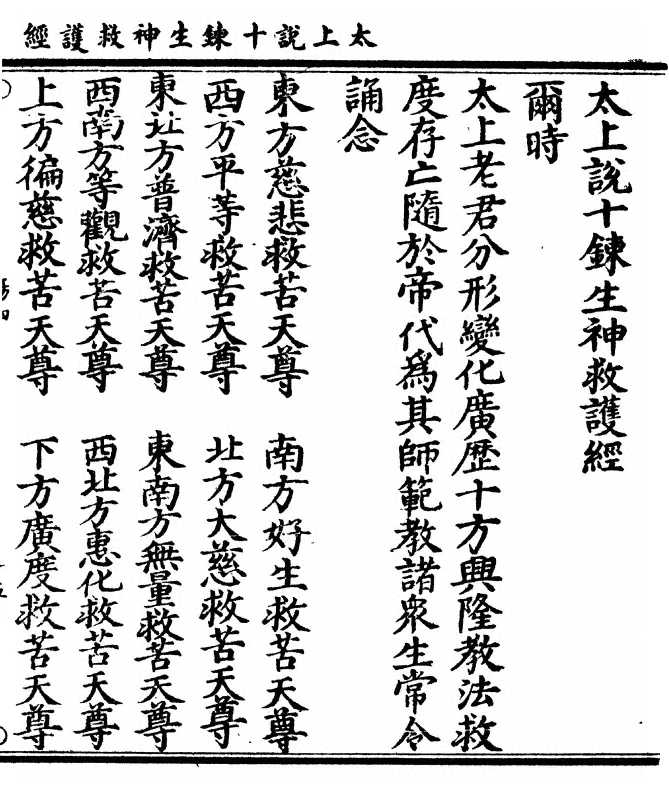 太上說十鍊生神救護經
太上說十鍊生神救護經
爾時
太上老君分形變化廣歷十方興隆教法救
度存亡隨於帝代爲其師範教諸衆生常令
誦念
東方慈悲救苦天尊 南方好生救苦天尊
西方平等救苦天尊 北方大慈救苦天尊
東北方普濟救苦天尊 東南方無量救苦天尊
西南方等觀救苦天尊 西北方惠化救苦天尊
上方徧慈救苦天尊 下方廣度救苦天尊